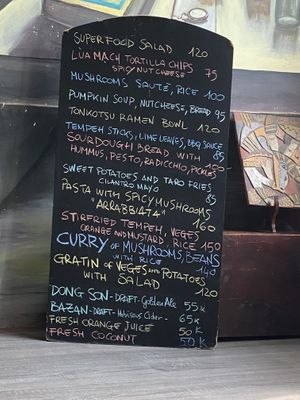 SUPERFOOD SALAD 120
LUA MACH TORTILLA CHIPS
SPICY NUTCHEESE 75
MUSHROOMS SAUTÉ, RICE 100
PUMPKIN SOUP, NUTCHEESE, BREAD 95
TONKOTSU RAMEN BOWL 120
TEMPEH STICKS, LIME LEAVES, BBQ SAUCE 85
SOURDOUGH BREAD WITH
HUMMUS, PESTO, RADICCHIO, PICKLES 100
SWEET POTATOES AND TARO FRIES
CILANTRO MAYO 85
PASTA WITH SPICY MUSHROOMS
"ARRABBIATA" 160
STIRFRIED TEMPEH, VEGES
ORANGE AND MUSTARD, RICE 150
CURRY OF MUSHROOMS, BEANS
WITH RICE 140
GRATIN OF VEGES AND POTATOES
WITH SALAD 120
DONG SON - DRAFT - Golden Ale 55K
BAZAN - DRAFT - Hibiscus Cider - 65K
FRESH ORANGE JUICE 50K
FRESH COCONUT 50K